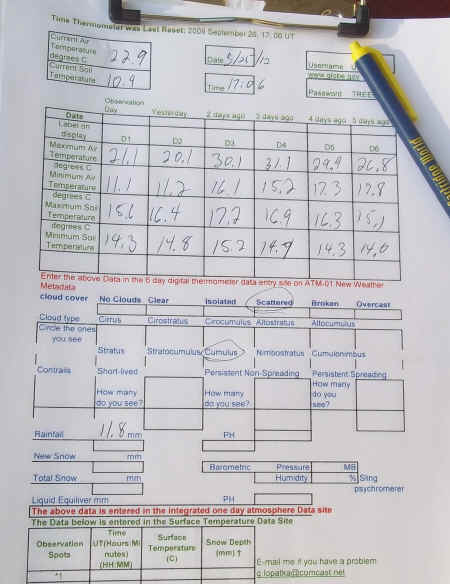 Time Thermometer was Last Reset: 2009 September 26, 17: 06 UT
Current Air Temperature degrees C 22.9
Date 5/25/12
Username
www.globe.gov
Current Soil Temperature 10.9
Time 17:06
Password TREE
Observation
Date Day Yesterday 2 days ago 3 days ago 4 days ago 5 days ago
Label on display D1 D2 D3 D4 D5 D6
Maximum Air Temperature degrees C 21.1 20.1 30.1 31.1 29.9 26.8
Minimum Air Temperature degrees C 11.1 11.2 16.1 15.2 17.3 17.8
Maximum Soil Temperature degrees C 15.6 16.4 17.2 16.9 16.3 15.1
Minimum Soil Temperature 14.3 14.8 15.2 14.9 14.3 14.0
Enter the above Data in the 6 day digital thermometer data entry site on ATM-01 New Weather
Metadata
cloud cover No Clouds Clear Isolated Scattered Broken Overcast
Cloud type Cirrus Cirostratus Cirocumulus Altostratus Altocumulus
Circle the ones you see
Stratus Stratocumulus Cumulus Nimbostratus Cumulonimbus
Contrails Short-lived Persistent Non-Spreading Persistent Spreading
How many do you see? How many do you see? How many do you see?
Rainfall 11.8 mm PH
New Snow mm
Barometric Pressure MB
Total Snow mm Humidity % Sling
psychromerer
Liquid Equiliver mm PH
The above data is entered in the integrated one day atmosphere Data site
The Data below is entered in the Surface Temperature Data Site
Observation Spots Time UT(Hours Minutes) (HH:MM) Surface Temperature (C) Snow Depth (mm) †
E-mail me if you have a problem
*1 g.lopatka@comcast.net